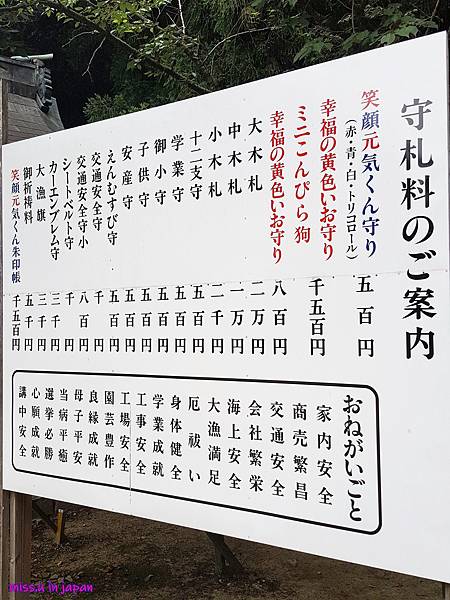 守札料のご案内
笑顔元気くん守り
(赤・青・白・トリコロール) 五百円
幸福の黄色いお守り
ミニこんぴら狗 千五百円
幸福の黄色いお守り 八百円
大木札 二万円
中木札 一万円
小木札 二千円
十二支守 五百円
学業守 五百円
御小守 五百円
子供守 五百円
安産守 五百円
えんむすび守 五百円
交通安全守 千円
交通安全守小 八百円
シートベルト守 千円
カーエンブレム守 三千円
大漁旗 三千円
御祈祷料 五千円
笑顔元気くん朱印帳 千五百円
おねがいごと
家内安全
商売繁昌
交通安全
会社繁栄
海上安全
大漁満足
厄祓い
身体健全
学業成就
工事安全
工場安全
園芸豊作
良縁成就
母子平安
当病平癒
選挙必勝
心願成就
講中安全
miss.u in japan